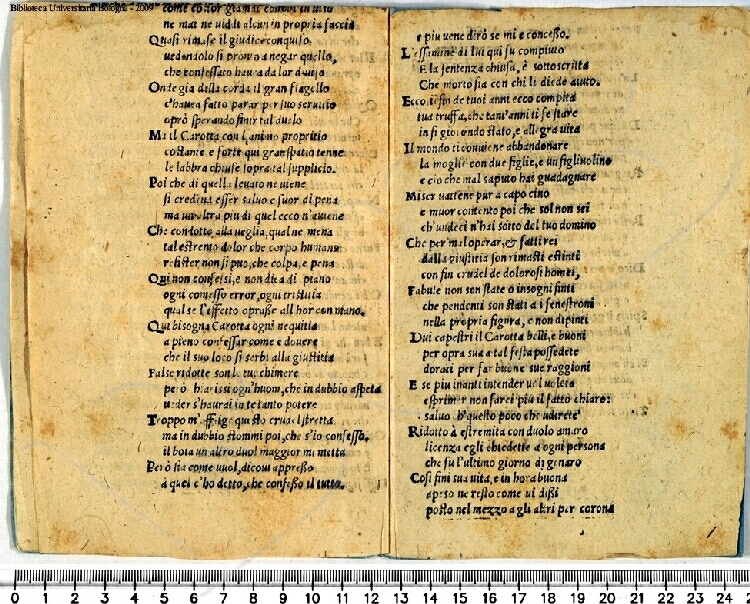 Biblioteca Universitaria Bologna - 2009
ne mai ne uiddi alcun in propria faccia
Quasi rimase il giudice conquiso
uedendolo si pronto a negar quello,
che confessato hauea da lor diuiso
Onde gia della corda il gran flagello
c'hauea fatto parar per suo seruitio
oprò sperando finir tal duolo
Ma il Carotta con l'animo propritio
costante e forte qui gran spatio tenne
le labbra chiuse sopra tal supplicio.
Poi che di quella leuato ne uiene
si credeua esser saluo e fuor di pena
ma un'altra piu di quel ecco n'auuene
Che condotto alla ueglia, qual ne mena
tal estremo dolor che corpo humano
resister non si puo, che colpa, e pena
Qui non confessi, e non dica di piano
ogni comesso error, ogni tristitia
qual se l'effetto oprasse all'hor con mano.
Qui bisogna Carotta ogni nequitia
a pieno confessar come e douere
che il suo loco si serbi alla giustitia
False ridotte son le tue chimere
però chiarissi ogn'huom, che in dubbio aspetta
ueder s'haurai in te tanto potere
Troppo m' affligge questo crudel stretta
ma in dubbio stommi poi, che s'io confesso,
il boia un altro duol maggior mi metta
Però sia come uuol, dicoui appresso
à quel c'ho detto, che confesso il tutto.
e piu uene dirò se mi è concesso.
L'essamine di lui qui fu compiuto
E la sentenza chiusa, è sottoscritta
Che morto sia con chi li diede aiuto.
Ecco il fin de tuoi anni ecco compita
tua truffa, che tant'anni ti fe stare
in si giocondo stato, e allegra uita
Il mondo ti conuiene abbandonare
la moglie con due figlie, e un figliuolino
e cio che mal saputo hai guadagnare
Miser uattene pur a capo cino
e muor contento poi che sol non sei
ch'undeci n'hai sotto del tuo domino
Che per mal operar, & fatti rei
dalla giustitia son rimasti estinti
con fin crudel de dolorosi homei,
Fabule non son state o insogni finti
che pendenti son stati a i fenestroni
nella propria figura, e non dipinti
Dui capestri il Carotta belli, e buoni
per opra sua a tal festa possedete
dorati per far buone sue raggioni
E se piu inanti intender uoi uolete
esprimer non farei piu il fatto chiaro:
saluo h'questo poco che udirete
Ridotto à estremita con duolo amaro
licenza egli chiedette a ogni persona
che fu l'ultimo giorno di genaro
Cosi finì sua uita, e in hora buona
apeso ne resto come ui dissi
posto nel mezzo a gli altri per corona
0 1 2 3 4 5 6 7 8 9 10 11 12 13 14 15 16 17 18 19 20 21 22 23 24